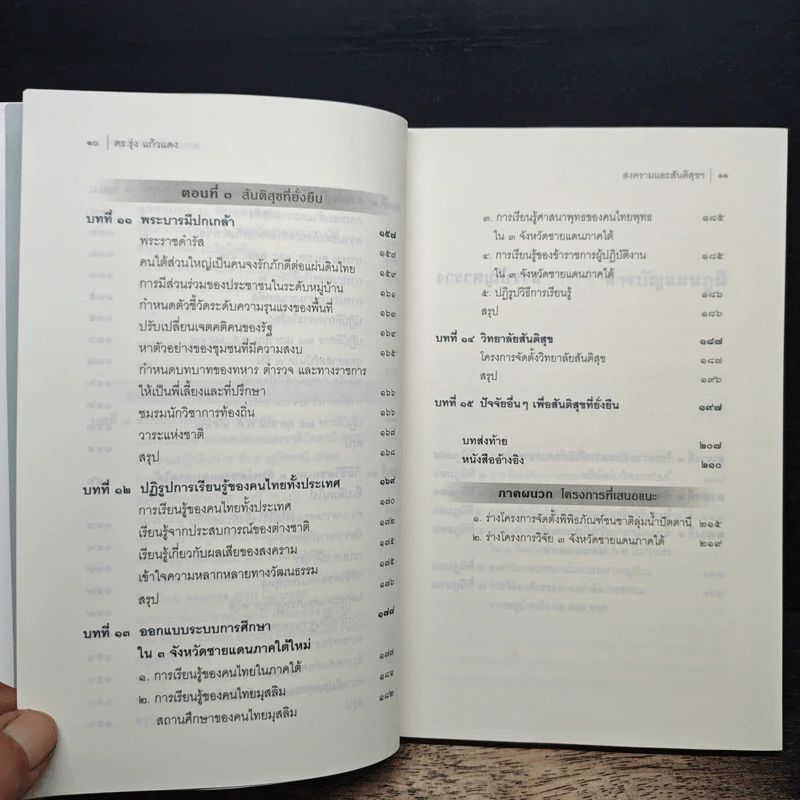 ๑๐ | ดร.รุ่ง แก้วแดง
ตอนที่ ๓ สันติสุขที่ยั่งยืน
บทที่ ๑๑ พระบารมีปกเกล้า ๑๕๗
พระราชดำรัส ๑๕๗
คนใต้ส่วนใหญ่เป็นคนจงรักภักดีต่อแผ่นดินไทย ๑๕๙
การมีส่วนร่วมของประชาชนในระดับหมู่บ้าน ๑๖๑
กำหนดตัวชี้วัดระดับความรุนแรงของพื้นที่ ๑๖๓
ปรับเปลี่ยนเจตคติคนของรัฐ ๑๖๔
หาตัวอย่างของชุมชนที่มีความสงบ ๑๖๕
กำหนดบทบาทของทหาร ตำรวจ และทางราชการ
ให้เป็นพี่เลี้ยงและที่ปรึกษา ๑๖๖
ชมรมนักวิชาการท้องถิ่น ๑๖๖
วาระแห่งชาติ ๑๖๗
สรุป ๑๖๘
บทที่ ๑๒ ปฏิรูปการเรียนรู้ของคนไทยทั้งประเทศ ๑๖๙
การเรียนรู้ของคนไทยทั้งประเทศ ๑๗๐
เรียนรู้จากประสบการณ์ของต่างชาติ ๑๗๒
เรียนรู้เกี่ยวกับผลเสียของสงคราม ๑๗๕
เข้าใจความหลากหลายทางวัฒนธรรม ๑๗๕
สรุป ๑๗๖
บทที่ ๑๓ ออกแบบระบบการศึกษา ๑๗๗
ใน ๓ จังหวัดชายแดนภาคใต้ใหม่
๑. การเรียนรู้ของคนไทยในภาคใต้ ๑๗๗
๒. การเรียนรู้ของคนไทยมุสลิม ๑๘๑
สถานศึกษาของคนไทยมุสลิม ๑๘๒
สงครามและสันติสุขฯ | ๑๑
๓. การเรียนรู้ศาสนาพุทธของคนไทยพุทธ ๑๘๕
ใน ๓ จังหวัดชายแดนภาคใต้
๔. การเรียนรู้ของข้าราชการผู้ปฏิบัติงาน ๑๘๕
ใน ๓ จังหวัดชายแดนภาคใต้
๕. ปฏิรูปวิธีการเรียนรู้ ๑๘๖
สรุป ๑๘๖
บทที่ ๑๔ วิทยาลัยสันติสุข ๑๘๗
โครงการจัดตั้งวิทยาลัยสันติสุข ๑๘๗
สรุป ๑๙๖
บทที่ ๑๕ ปัจจัยอื่นๆ เพื่อสันติสุขที่ยั่งยืน ๑๙๗
บทส่งท้าย ๒๐๗
หนังสืออ้างอิง ๒๑๐
ภาคผนวก โครงการที่เสนอแนะ
๑. ร่างโครงการจัดตั้งพิพิธภัณฑ์ชนชาติลุ่มน้ำปัตตานี ๒๑๕
๒. ร่างโครงการวิจัย ๓ จังหวัดชายแดนภาคใต้ ๒๑๙